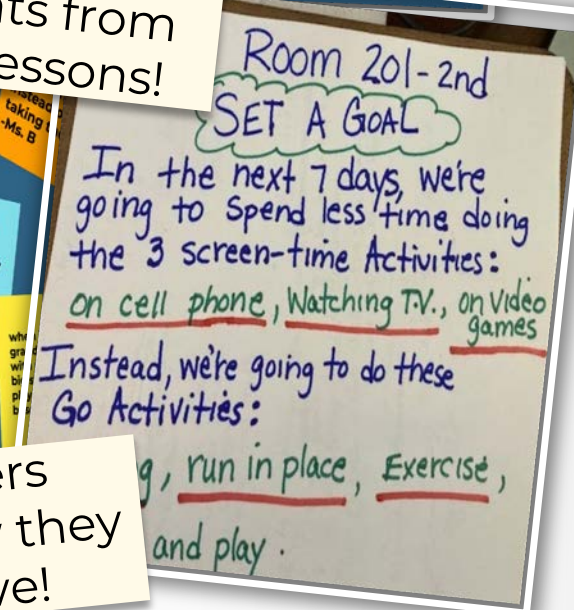 ts from
essons!
Room 201-2nd
SET A GOAL
In the next 7 days, we're
going to spend less time doing
the 3 screen-time Activities:
on cell phone, Watching T.V., on video
games
Instead, we're going to do these
Go Activities:
g, run in place, Exercise,
and play.
ers
they
ve!
taking
-Ms. B